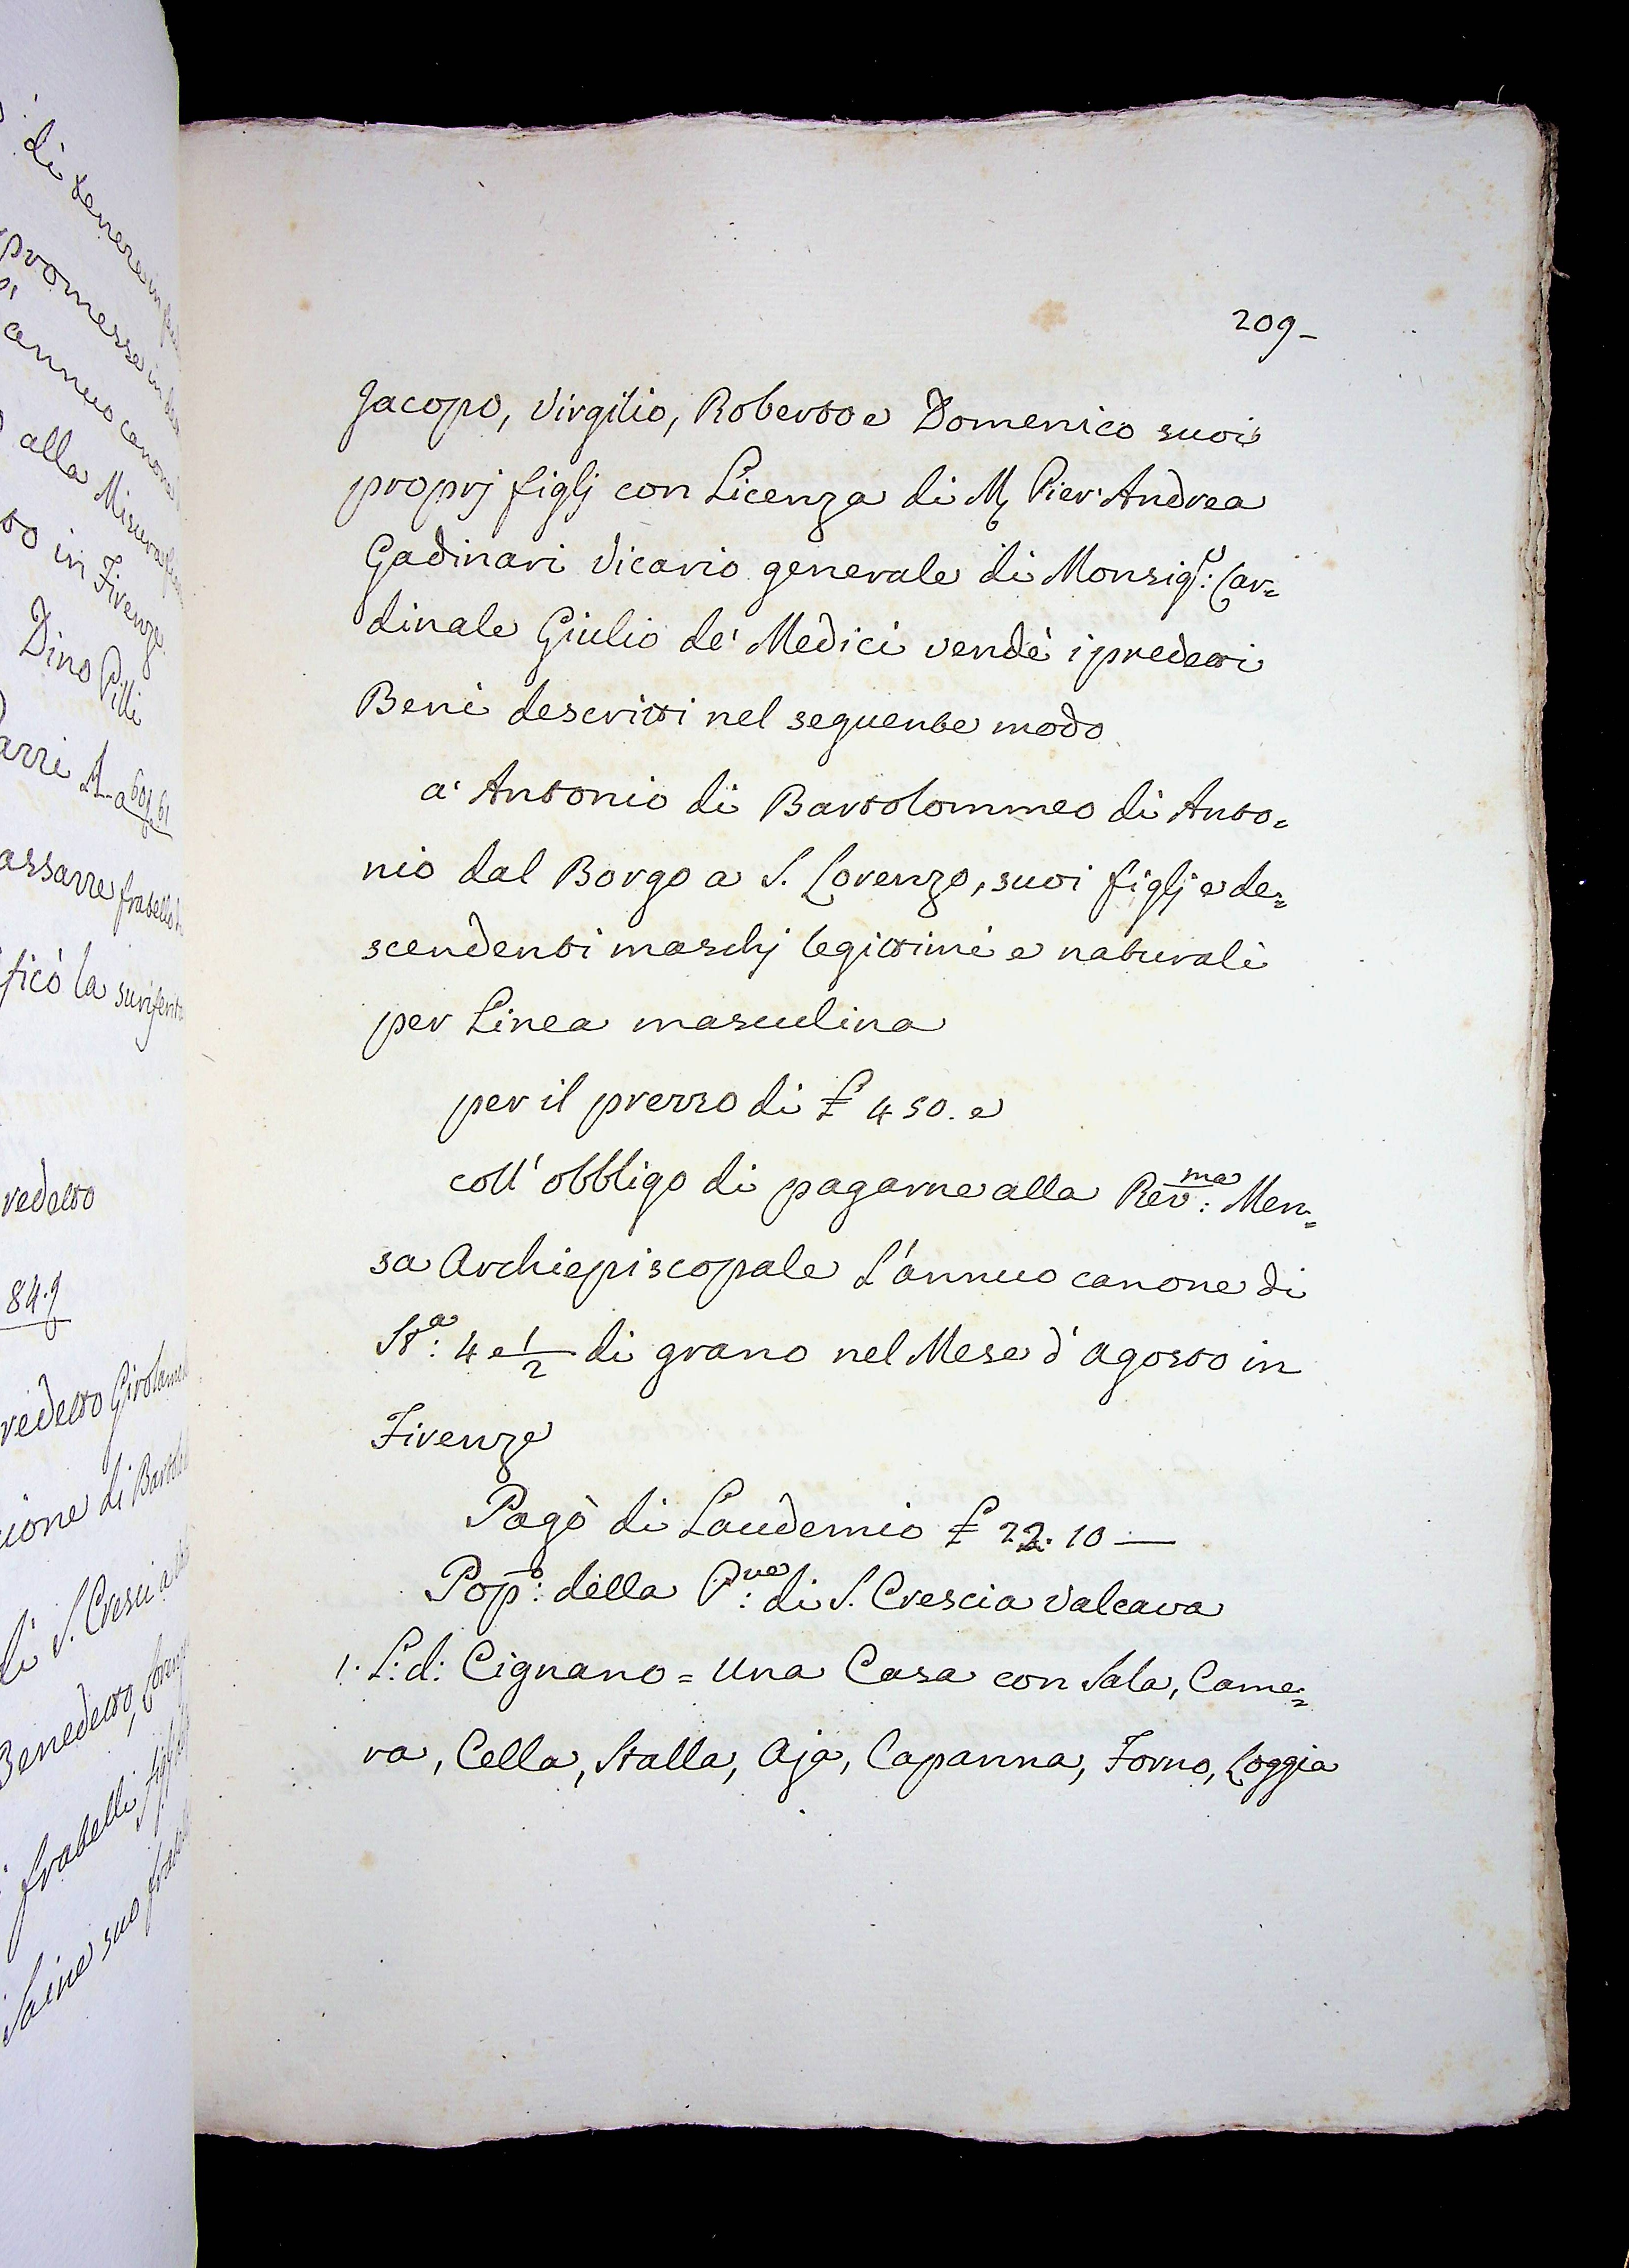 209-
Jacopo, Virgilio, Roberto e Domenico suoi
proprj figlj con Licenza di M. Pier' Andrea
Gadinari Vicario generale di Monsig.r: Car=
dinale Giulio de' Medici vendè i predetti
Beni descritti nel seguente modo
a' Antonio di Bartolommeo di Anto=
nio dal Borgo a S. Lorenzo, suoi figlj e de=
scendenti maschj legittimi e naturali
per Linea masculina
per il prezzo di £ 450. e
coll' obbligo di pagarne alla Rev:ma Men=
sa Archiepiscopale L'annuo canone di
St:a 4 e 1/2 di grano nel Mese d' agosto in
Firenze
Pagò di Laudemio £ 22. 10 —
Pop:o della P:ve di S. Crescia Valcava
1. L: d: Cignano = una Casa con Sala, Came=
ra, Cella, Stalla, Aja, Capanna, Forno, Loggia
di tenere in
promesse in
annuo canone
alla Misura
to in Firenze
Dino Pilli
fratello
ficò la
redetto
84.9
redetto Girolamo
ione di
di S. Cresci a
Benedetto,
fratelli
suo